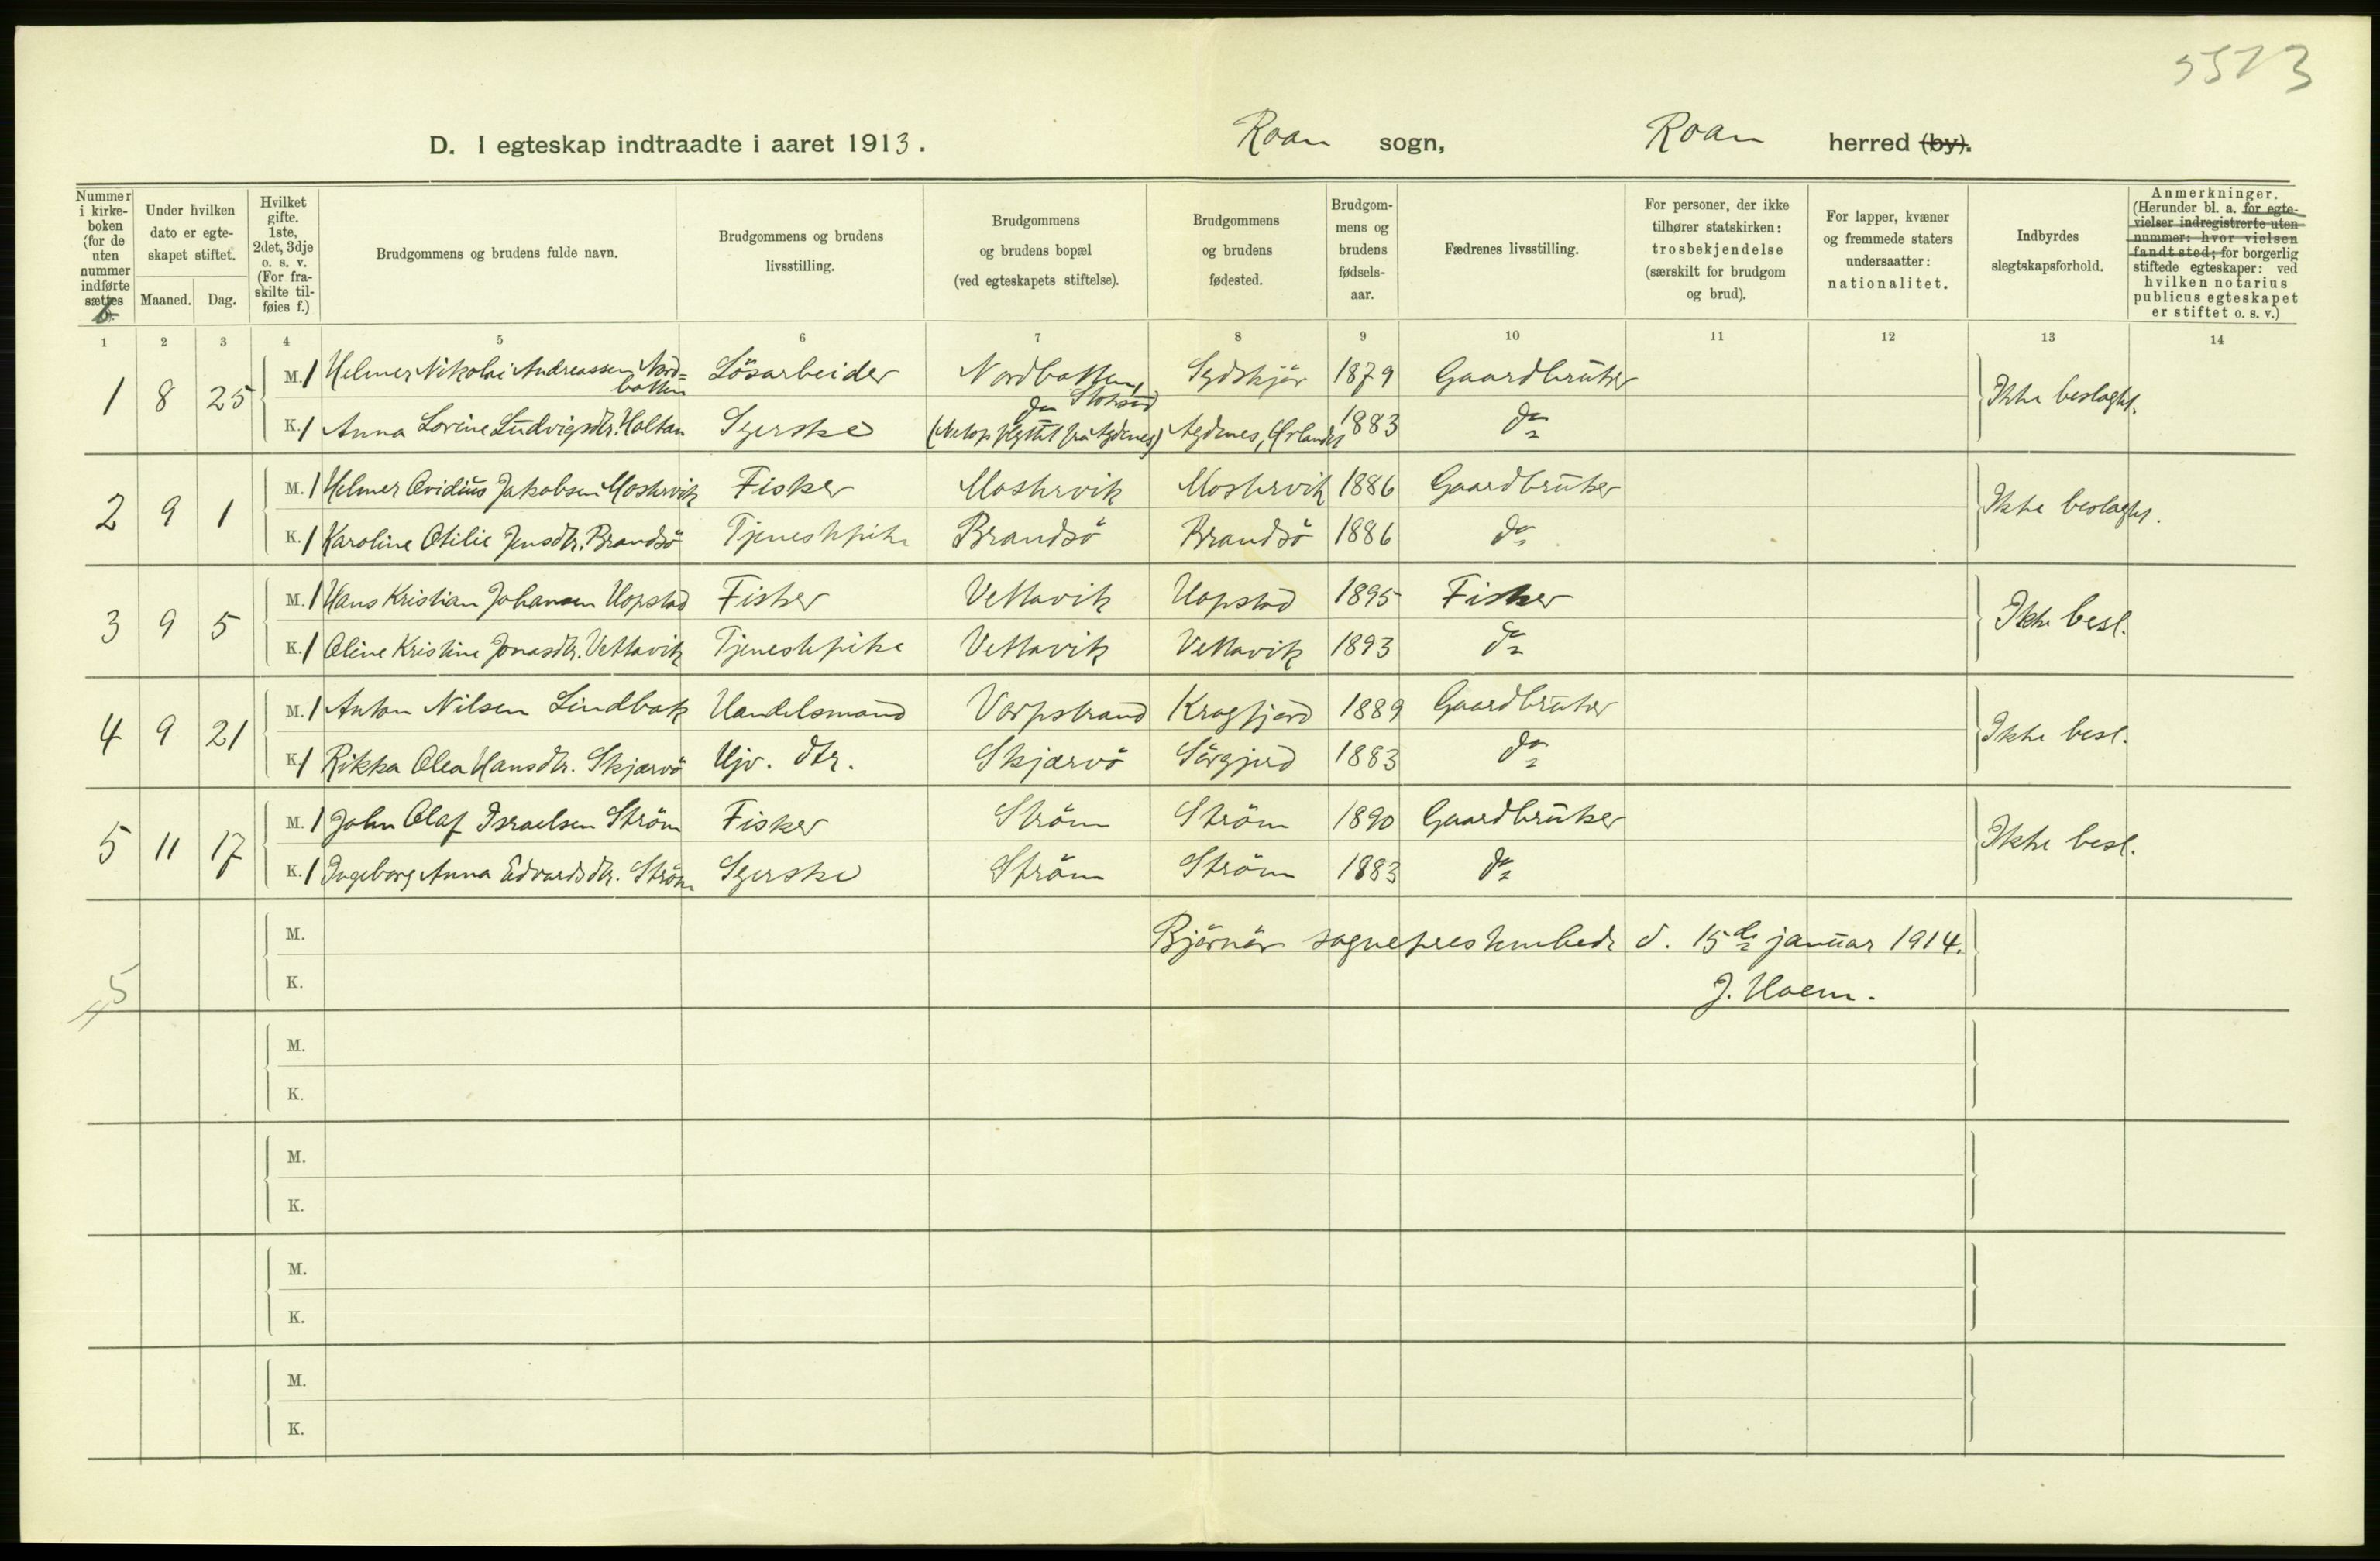 5513
D. I egteskap indtraadte i aaret 1913. Roan sogn, Roan herred (by).
Nummer i kirke- boken (for de uten nummer indførte sættes
Under hvilken dato er egte- skapet stiftet.
Maaned. Dag.
Hvilket gifte. 1ste, 2det, 3dje o. s. v. (For fra- skilte til- føies f.)
Brudgommens og brudens fulde navn.
Brudgommens og brudens livsstilling.
Brudgommens og brudens bopæl (ved egteskapets stiftelse).
Brudgommens og brudens fødested.
Brudgom- mens og brudens fødsels- aar.
Fædrenes livsstilling.
For personer, der ikke tilhører statskirken: trosbekjendelse (særskilt for brudgom og brud).
For lapper, kvæner og fremmede staters undersaatter: nationalitet.
Indbyrdes slegtskapsforhold.
Anmerkninger. (Herunder bl. a. for egte- vielser indregistrerte uten nummer: hvor vielsen fandt sted; for borgerlig stiftede egteskaper: ved hvilken notarius publicus egteskapet er stiftet o. s. v.)
1 2 3 4 5 6 7 8 9 10 11 12 13 14
1 8 25 M. 1 Helmer Nikolai Andreassen Nord= botten Lösarbeider Nordbotten, Stoksund Sydskjör 1879 Gaardbruker Ikke beslagtet.
K. 1 Anna Lovine Ludvigsdtr. Holtan Syerske do (Netop flyttet fra Agdenes) Agdenes, Ørlandet 1883 do
2 9 1 M. 1 Helmer Ovidius Jakobsen Moskevik Fisker Moskevik Moskevik 1886 Gaardbruker Ikke beslagtet.
K. 1 Karoline Otilie Jensdtr. Brandsö Tjenestepike Brandsö Brandsö 1886 do
3 9 5 M. 1 Hans Kristian Johansen Hopstad Fisker Vettavik Hopstad 1895 Fisker Ikke besl.
K. 1 Oline Kristine Jonasdtr. Vettavik Tjenestepike Vettavik Vettavik 1893 do
4 9 21 M. 1 Anton Nilsen Lindbak Handelsmand Vorpstrand Kragfjord 1889 Gaardbruker Ikke besl.
K. 1 Rikka Olea Hansdtr. Skjærvö Hjv. dtr. Skjærvö Sörgjerd 1883 do
5 11 17 M. 1 John Olaf Israelsen Ström Fisker Ström Ström 1890 Gaardbruker Ikke besl.
K. 1 Ingeborg Anna Edvardsdtr. Ström Syerske Ström Ström 1883 do
M. Björnör sogneprestembede d. 15de januar 1914.
5 K. J. Hoem.
M.
K.
M.
K.
M.
K.
M.
K.